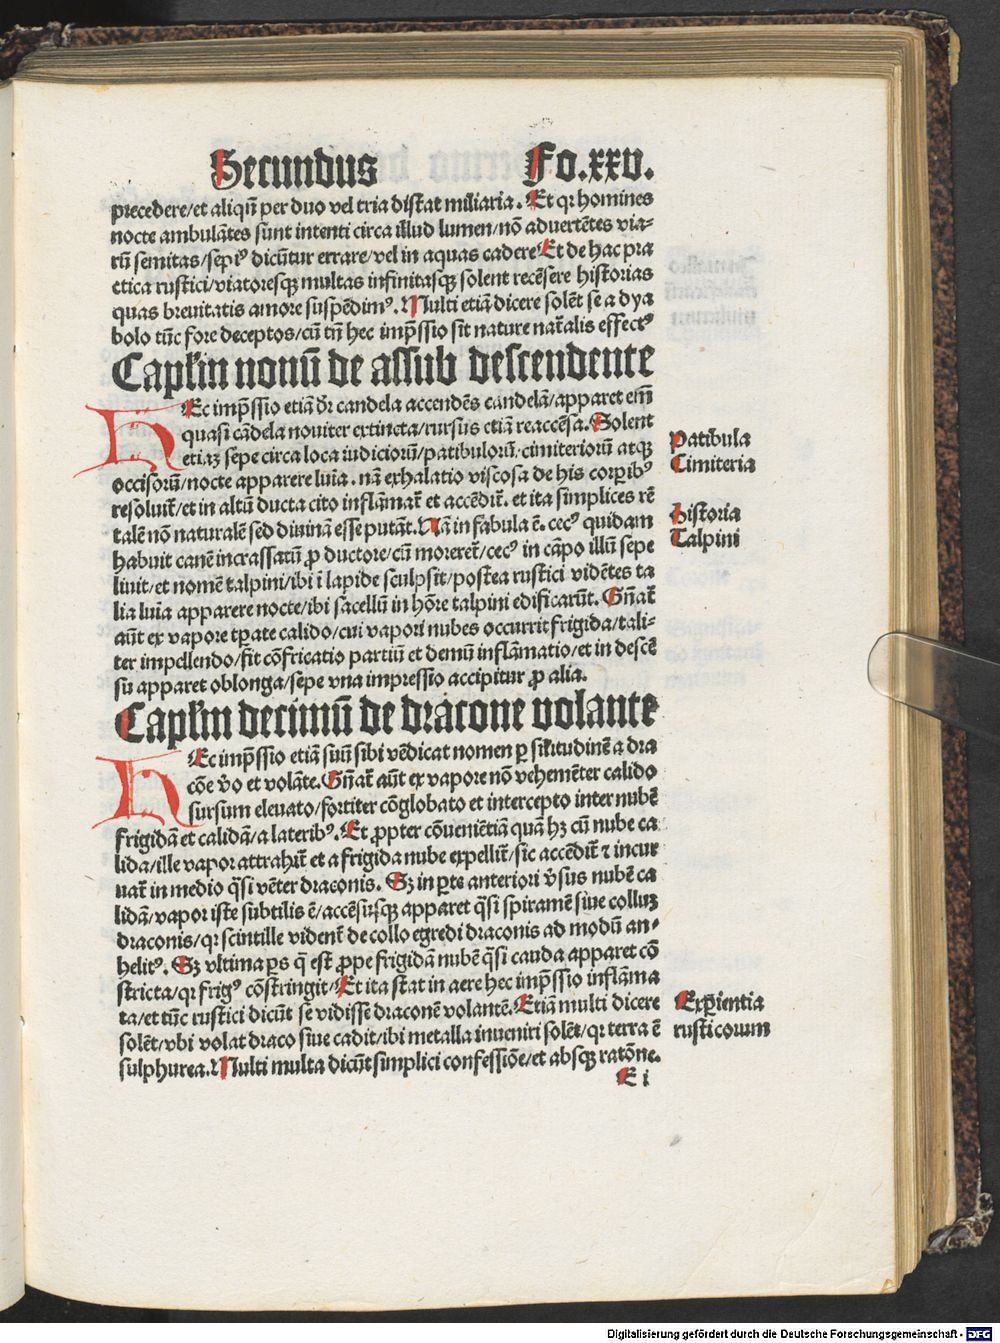 Secundus Fo.xxv.
precedere/et aliqñ per duo vel tria distat miliaria. Et qꝛ homines
nocte ambulãtes sunt intenti circa illud lumen/nõ aduertẽtes via-
rũ semitas/sepiꝰ dicũtur errare/vel in aquas cadere Et de hac pra
ctica rustici/viatoresqꝫ multas infinitasqꝫ solent recẽsere historias
quas breuitatis amore suspẽdimꝰ. Multi etiã dicere solẽt se a dya
bolo tũc fore deceptos/cũ tñ hec imp̃ssio sit nature nat̃alis effectꝰ
Capl̃m nonũ de assub descendente
HEc imp̃ssio etiã dr̃ candela accendẽs candelã/apparet em̃
quasi cãdela nouiter extincta/rursus etiã reaccẽsa. Solent
etiaꝫ sepe circa loca iudiciorũ/patibulorũ/cimiteriorũ atqꝫ
occisorũ/nocte apparere luĩa. nã exhalatio viscosa de his corꝑibꝰ
resoluit̃/et in altũ ducta cito inflãmat̃ et accẽdit̃. et ita simplices rẽ
talẽ nõ naturalẽ sed diuinã esse putãt. Nã in fabula ẽ. cecꝰ quidam
habuit canẽ incrassatũ ꝓ ductore/cũ moreret̃/cecꝰ in cãpo illũ sepe
liuit/et nomẽ talpini/ibi ĩ lapide sculpsit/postea rustici vidẽtes ta
lia luĩa apparere nocte/ibi sacellũ in hõre talpini edificarũt. Gñat̃
aũt ex vapore tꝑate calido/cui vapori nubes occurrit frigida/tali-
ter impellendo/fit cõfricatio partiũ et demũ inflãmatio/et in descẽ
su apparet oblonga/sepe vna impressio accipitur ꝓ alia.
Capl̃m decimũ de dracone volante
HEc imp̃ssio etiã suũ sibi vẽdicat nomen ꝑ sil̃itudinẽ a dra
cõe ṽo et volãte. Gñat̃ aũt ex vapore nõ vehemẽter calido
sursum eleuato/fortiter cõglobato et intercepto inter nubẽ
frigidã et calidã/a lateribꝰ. Et ꝓpter cõueniẽtiã quã hꝫ cũ nube ca
lida/ille vapor attrahit̃ et a frigida nube expellit̃/sic accẽdit̃ ⁊ incur
uat̃ in medio q̃si vẽter draconis. Sꝫ in ꝑte anteriori ṽsus nubẽ ca
lidã/vapor iste subtilis ẽ/accẽsusqꝫ apparet q̃si spiramẽ siue colluꝫ
draconis/qꝛ scintille vident̃ de collo egredi draconis ad modũ an-
helitꝰ. Sꝫ vltima ꝑs q̃ est ꝓpe frigidam nubẽ q̃si cauda apparet cõ
stricta/qꝛ frigꝰ cõstringit/Et ita stat in aere hec imp̃ssio inflãma
ta/et tũc rustici dicũt se vidisse draconẽ volantẽ. Etiã multi dicere
solẽt/vbi volat draco siue cadit/ibi metalla inueniri solẽt/qꝛ terra ẽ
sulphurea. Multi multa dicũt simplici confessiõe/et absqꝫ ratõne.
E i
Patibula
Cimiteria
Historia
Talpini
Exꝑientia
rusticorum
Digitalisierung gefördert durch die Deutsche Forschungsgemeinschaft - DFG